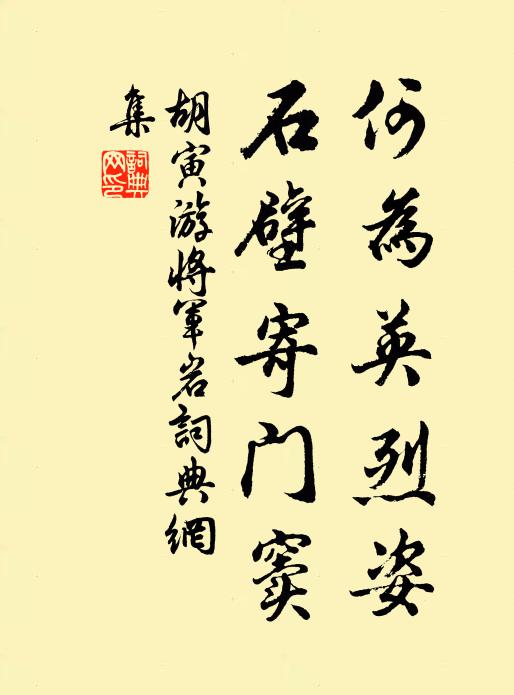 何為英烈姿
石壁寄门竇
胡寅游將軍岩詞典網
集
詞典网印